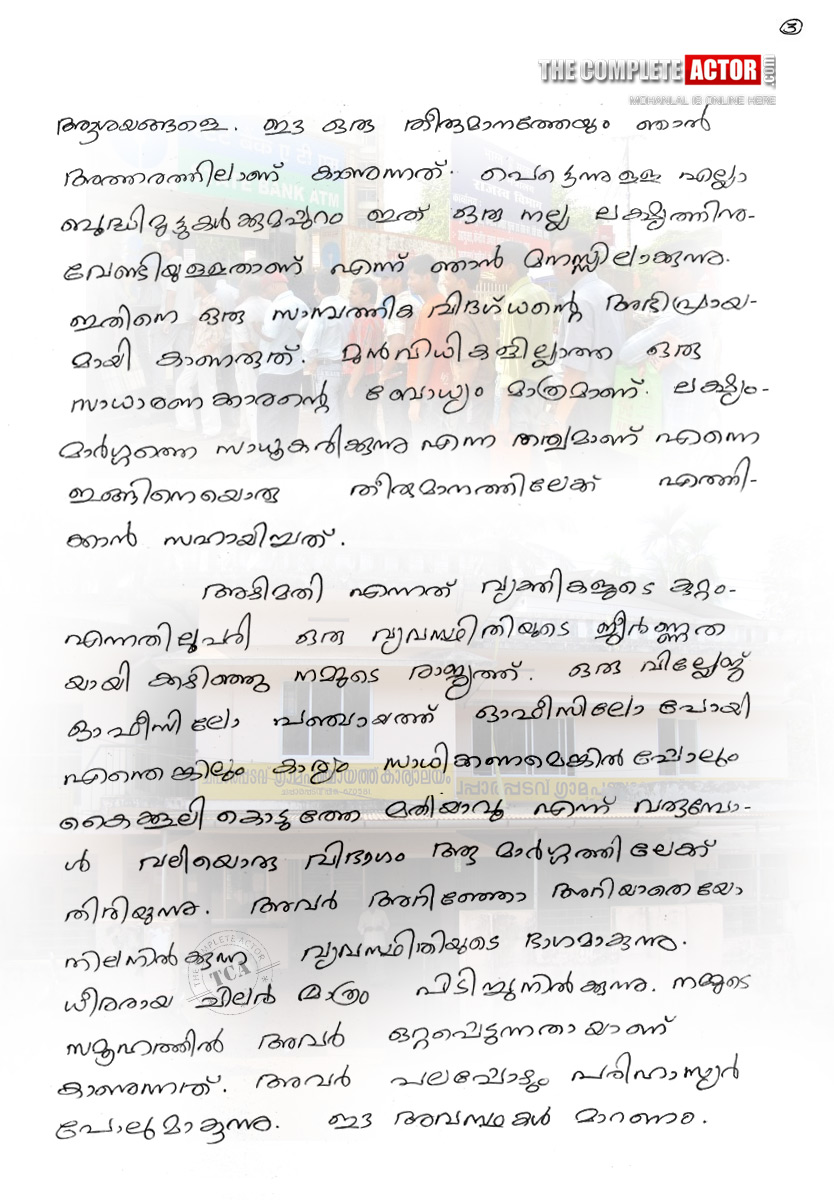 ③
THE COMPLETE ACTOR .com
MOHANLAL IS ONLINE HERE
ആശയങ്ങളെ. ഈ ഒരു തീരുമാനത്തേയും ഞാൻ
അത്തരത്തിലാണ് കാണുന്നത്. പെട്ടെന്നുള്ള എല്ലാ
ബുദ്ധിമുട്ടുകൾക്കുമപ്പുറം ഇത് ഒരു നല്ല ലക്ഷ്യത്തിനു-
വേണ്ടിയുള്ളതാണ് എന്ന് ഞാൻ മനസ്സിലാക്കുന്നു.
ഇതിനെ ഒരു സാമ്പത്തിക വിദഗ്ധന്റെ അഭിപ്രായ-
മായി കാണരുത്. മുൻവിധികളില്ലാത്ത ഒരു
സാധാരണക്കാരന്റെ ബോധ്യം മാത്രമാണ്. ലക്ഷ്യം-
മാർഗ്ഗത്തെ സാധൂകരിക്കുന്നു എന്ന തത്വമാണ് എന്നെ
ഇങ്ങിനെയൊരു തീരുമാനത്തിലേക്ക് എത്തി-
ക്കാൻ സഹായിച്ചത്.
അഴിമതി എന്നത് വ്യക്തികളുടെ കുറ്റം-
എന്നതിലുപരി ഒരു വ്യവസ്ഥിതിയുടെ ജീർണ്ണത
യായി കഴിഞ്ഞു നമ്മുടെ രാജ്യത്ത്. ഒരു വില്ലേജ്
ഓഫീസിലോ പഞ്ചായത്ത് ഓഫീസിലോ പോയി
എന്തെങ്കിലും കാര്യം സാധിക്കണമെങ്കിൽപ്പോലും
കൈക്കൂലി കൊടുത്തേ മതിയാവൂ എന്ന് വരുമ്പോ-
ൾ വലിയൊരു വിഭാഗം ആ മാർഗ്ഗത്തിലേക്ക്
തിരിയുന്നു. അവർ അറിഞ്ഞോ അറിയാതെയോ
നിലനിൽക്കുന്ന വ്യവസ്ഥിതിയുടെ ഭാഗമാകുന്നു.
ധീരരായ ചിലർ മാത്രം പിടിച്ചുനിൽക്കുന്നു. നമ്മുടെ
സമൂഹത്തിൽ അവർ ഒറ്റപ്പെടുന്നതായാണ്
കാണുന്നത്. അവർ പലപ്പോഴും പരിഹാസ്യർ
പോലുമാകുന്നു. ഈ അവസ്ഥകൾ മാറണം.
THE COMPLETE ACTOR
TCA
STATE BANK ATM